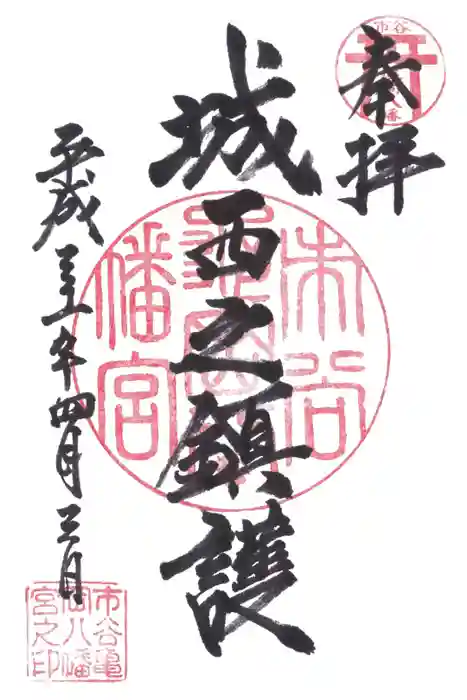 奉拝
城西之鎮護
平成三十一年四月三日
市谷
八幡宮
市谷亀
岡八幡
宮之印